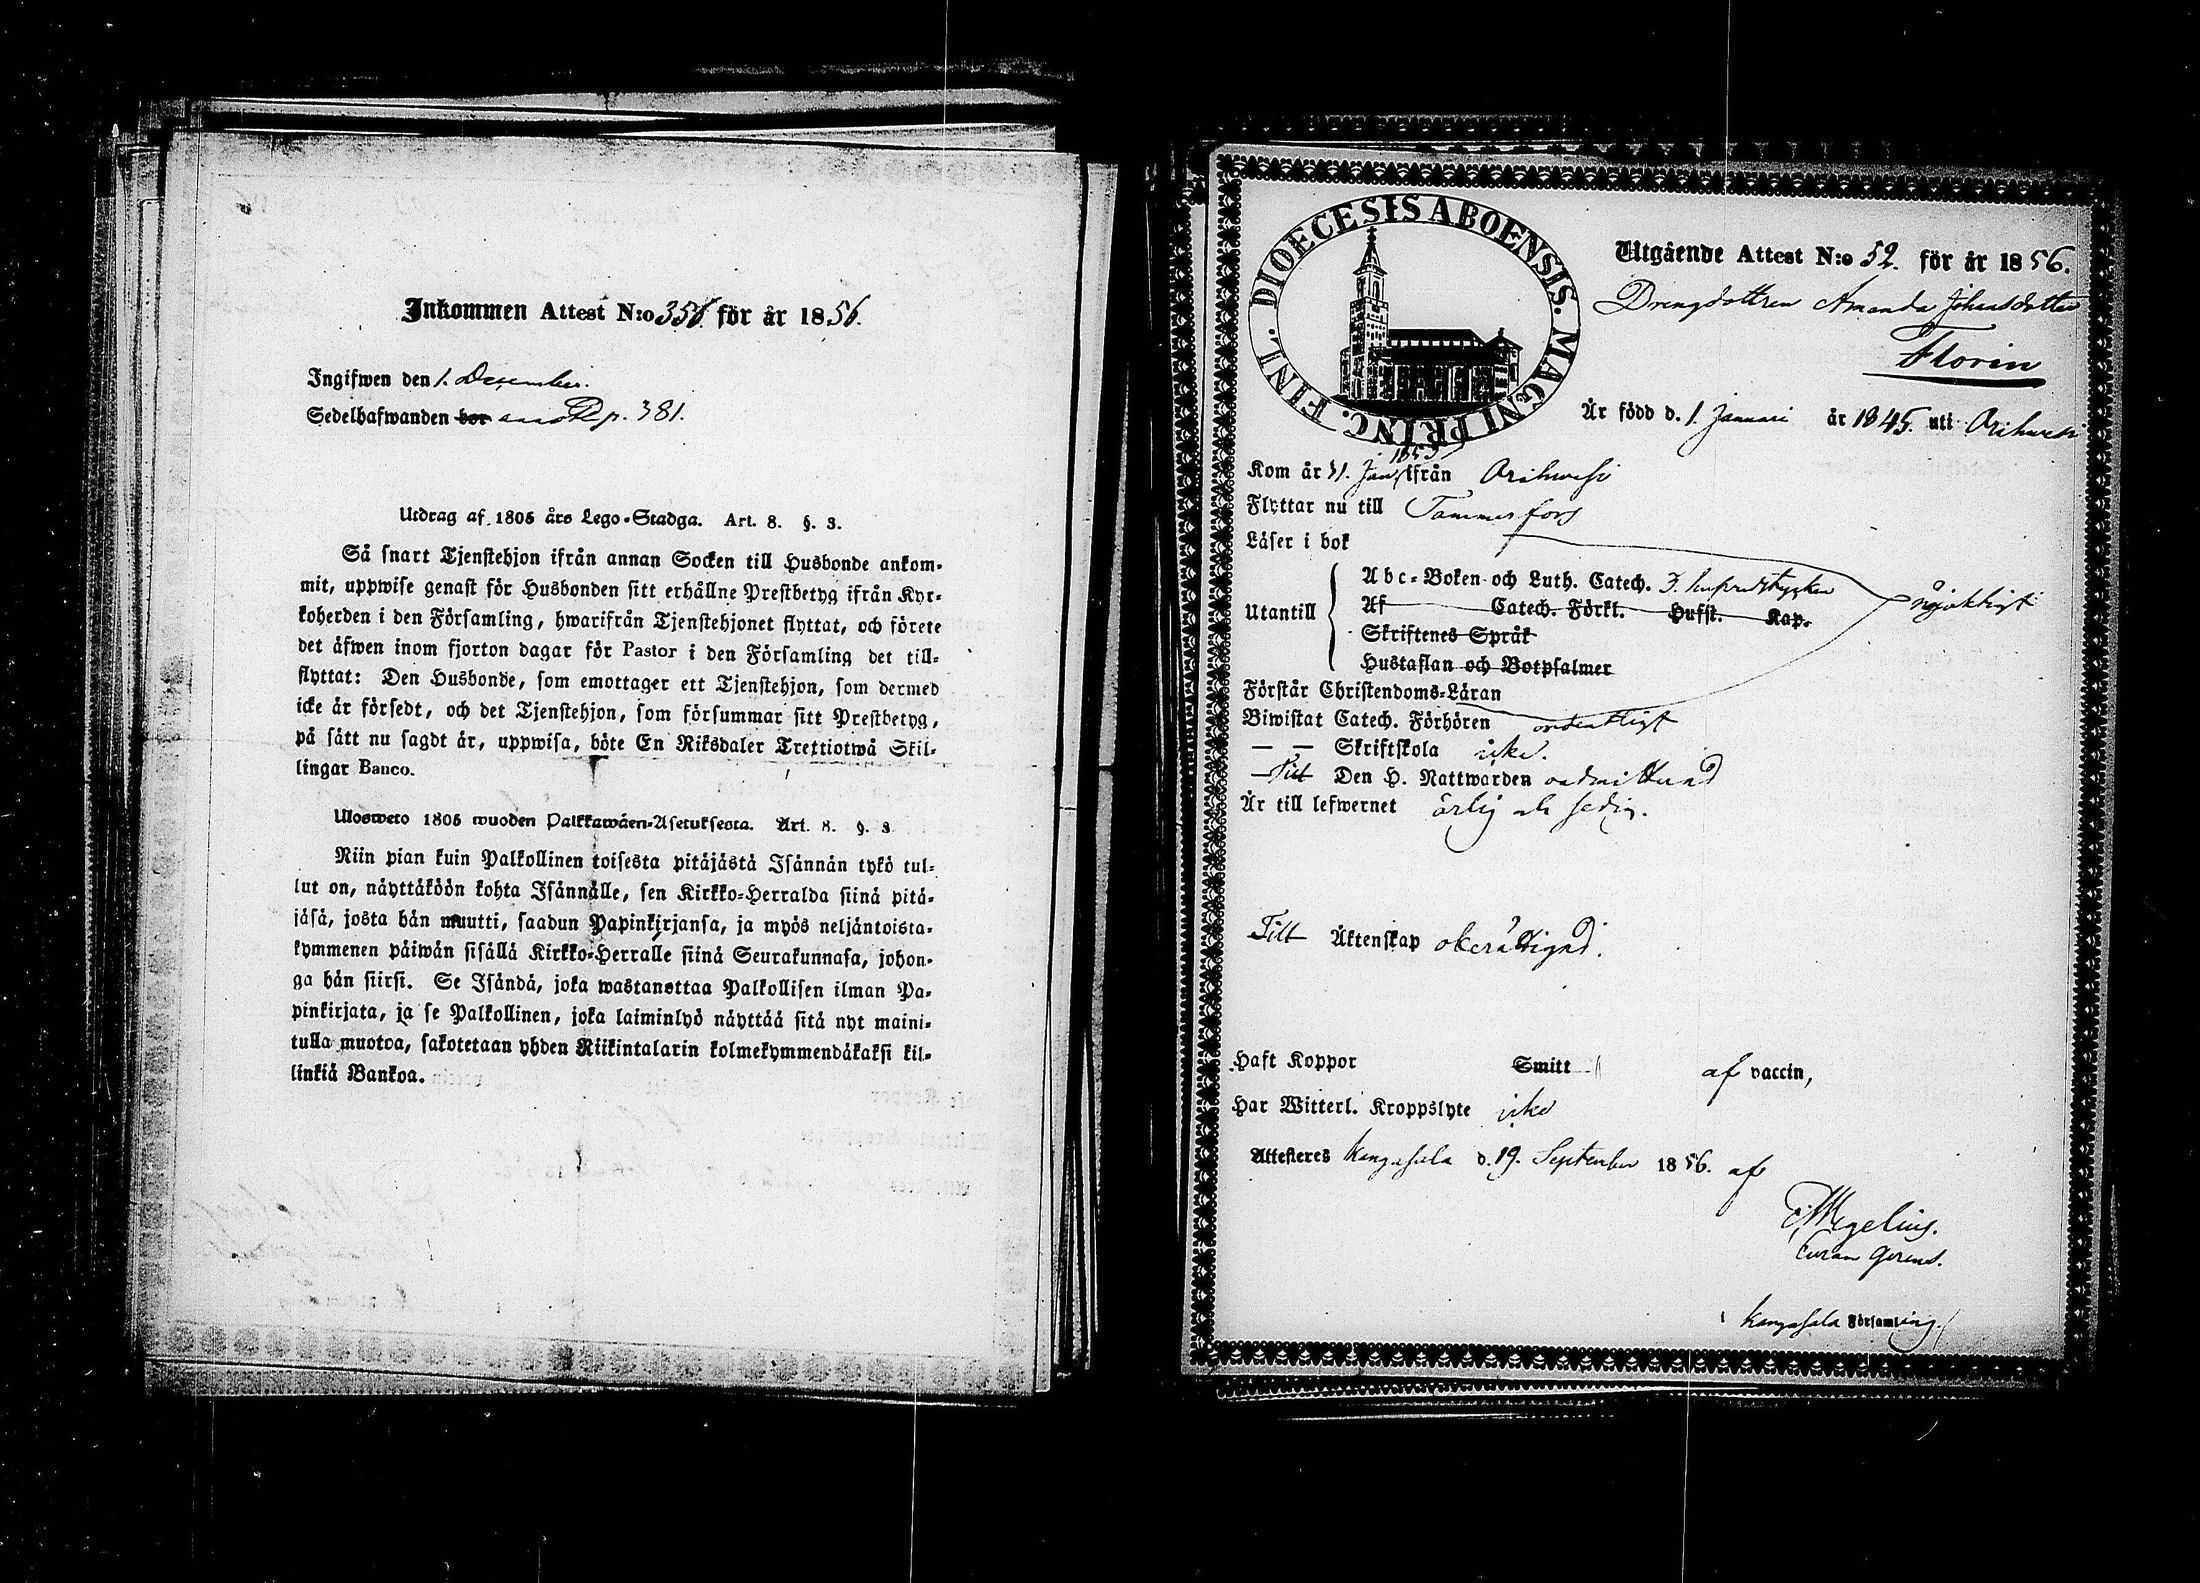 Inkommen Attest N:o 356. för år 1856.
Ingifwen den 1. December.
Sedelhafwanden bor p. 381.
Utdrag af 1805 års Lego-Stadga. Art. 8. §. 3.
Så snart Tjenstehjon ifrån annan Socken till Husbonde ankom-
mit, uppwise genast för Husbonden sitt erhållne Prestbetyg ifrån Kyr-
koherden i den Församling, hwarifrån Tjenstehjonet flyttat, och förete
det äfwen inom fjorton dagar för Pastor i den Församling det till-
flyttat: Den Husbonde, som emottager ett Tjenstehjon, som dermed
icke är försedt, och det Tjenstehjon, som försummar sitt Prestbetyg,
på sätt nu sagdt är, uppwisa, böte En Riksdaler Trettiotwå Skil-
lingar Banco.
Ulosweto 1805 wuoden Palkkawäen-Asetuksesta. Art. 8. §. 3
Niin pian kuin Palkollinen toisesta pitäjästä Isännän tykö tul-
lut on, näyttäköön kohta Isännälle, sen Kirkko-Herralda siinä pitä-
jäsä, josta hän muutti, saadun Papinkirjansa, ja myös neljäntoista-
kymmenen päiwän sisällä Kirkko-Herralle siinä Seurakunnasa, johon-
ga hän siirsi. Se Isändä, joka wastanottaa Palkollisen ilman Pa-
pinkirjata, ja se Palkollinen, joka laiminlyö näyttää sitä nyt maini-
tulla muotoa, sakotetaan yhden Riikintalarin kolmekymmendäkaksi kil-
linkiä Bankoa.
DIOECESIS ABOENSIS. MAGNI PRINC. FINL.
Utgående Attest N:o 52. för år 1856.
Drengdottren Amanda Johansdotter
Florin
Är född d. 1 Januari år 1845. uti Orihwesi
1853
Kom år 31. Jan. ifrån Orihwesi
Flyttar nu till Tammerfors
Läser i bok
Utantill
Abc-Boken och Luth. Catech. 3. hufvudstycken nöjaktigt
Af Catech. Förkl. Hufst. Kap.
Skriftenes Språk
Hustaflan och Botpsalmer
Förstår Christendoms-Läran
Biwistat Catech. Förhören ordentligt
— — Skriftskola icke.
Till Den H. Nattwarden oadmitterad
Är till lefwernet ärlig och sedig.
Till Äktenskap oberättigad.
Haft Koppor Smitt af vaccin,
Har Witterl. Kroppslyte icke
Attesteres Kangasala d. 19. September 1856. af
Megelius.
Curam Gerens.
i Kangasala Församling.